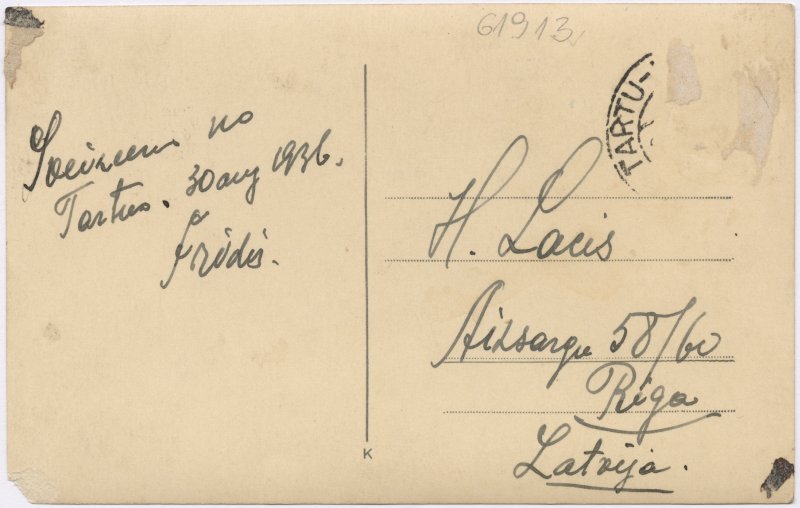 61913.
TARTU-
Sveiciens no
Tartus. 30 aug 1936.
Frīdis.
H. Lacis
Aizsargu 58/60
Riga
Latvija.
K